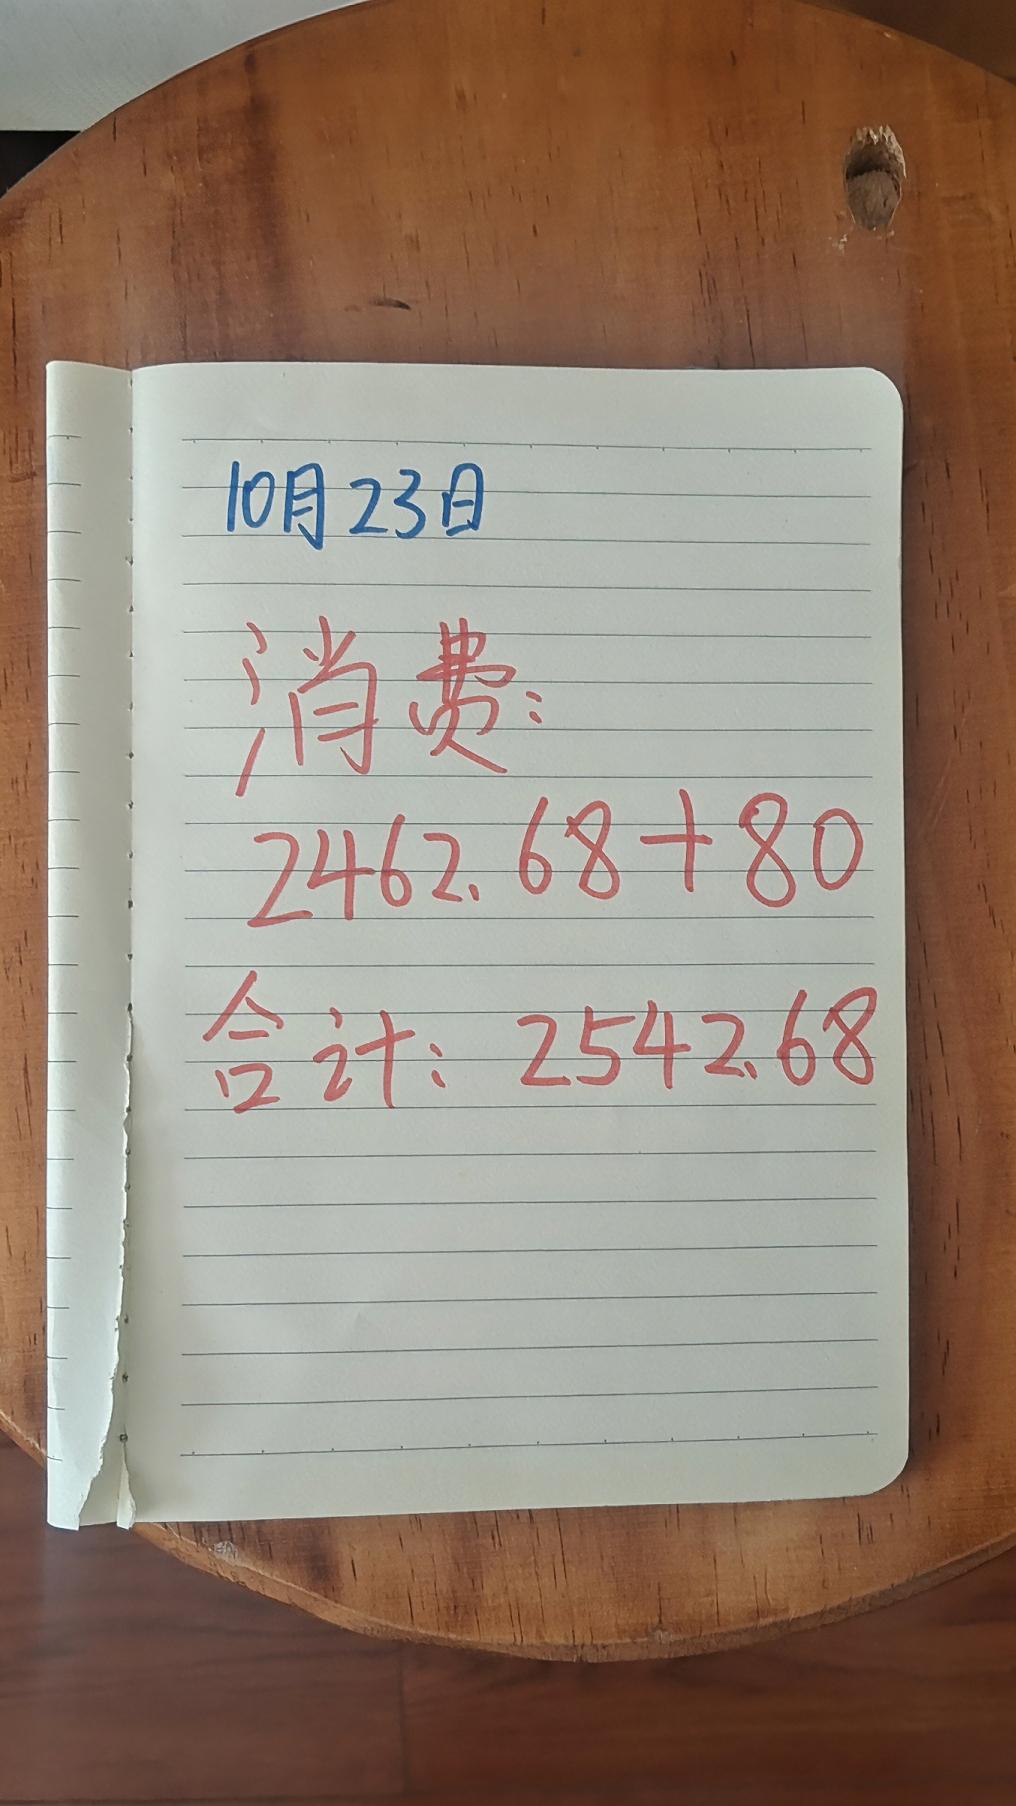 10月23日
消费:
2462.68+80
合计: 2542.68